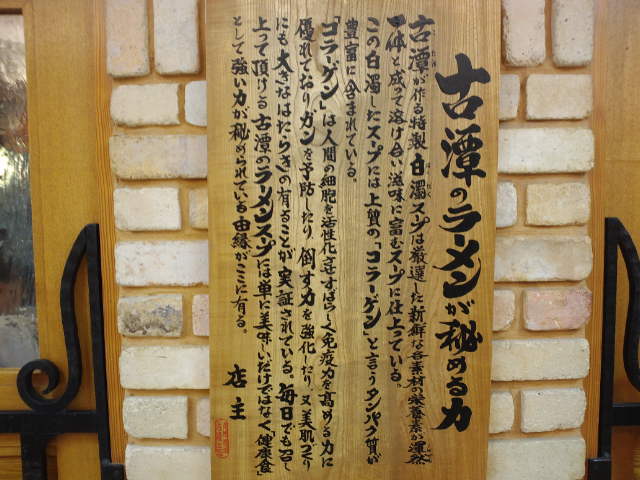 古潭のラーメンが秘める力
古潭が作る特製白濁スープは厳選した新鮮な各素材の栄養素が渾然
一体と成って溶け合い滋味に富むスープに仕上っている。
この白濁したスープには上質の「コラーゲン」と言うタンパク質が
豊富に含まれている。
「コラーゲン」は人間の細胞を活性化させすばらしく免疫力を高める力に
優れておりガンを予防したり、倒す力を強化したり又美肌づくり
にも大きなはたらきの有ることが実証されている。毎日でも召し
上って頂ける古潭のラーメンスープには単に美味いだけではなく「健康食」
として強い力が秘められている由縁がここに有る。
店主